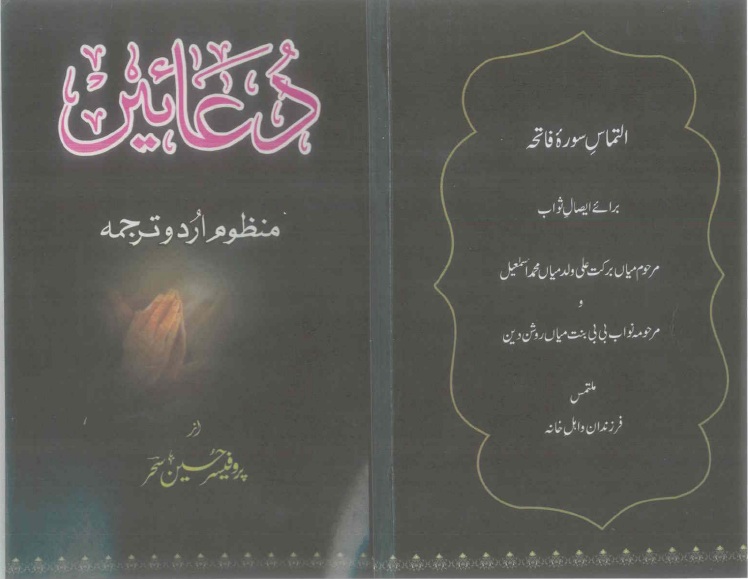 دُعائیں
منظوم اُردو ترجمہ
از
پروفیسر حسین سحر
التماسِ سورۂ فاتحہ
برائے ایصالِ ثواب
مرحوم میاں برکت علی ولد میاں محمد اسمٰعیل
و
مرحومہ نواب بی بی بنت میاں روشن دین
ملتمس
فرزندان و اہل خانہ